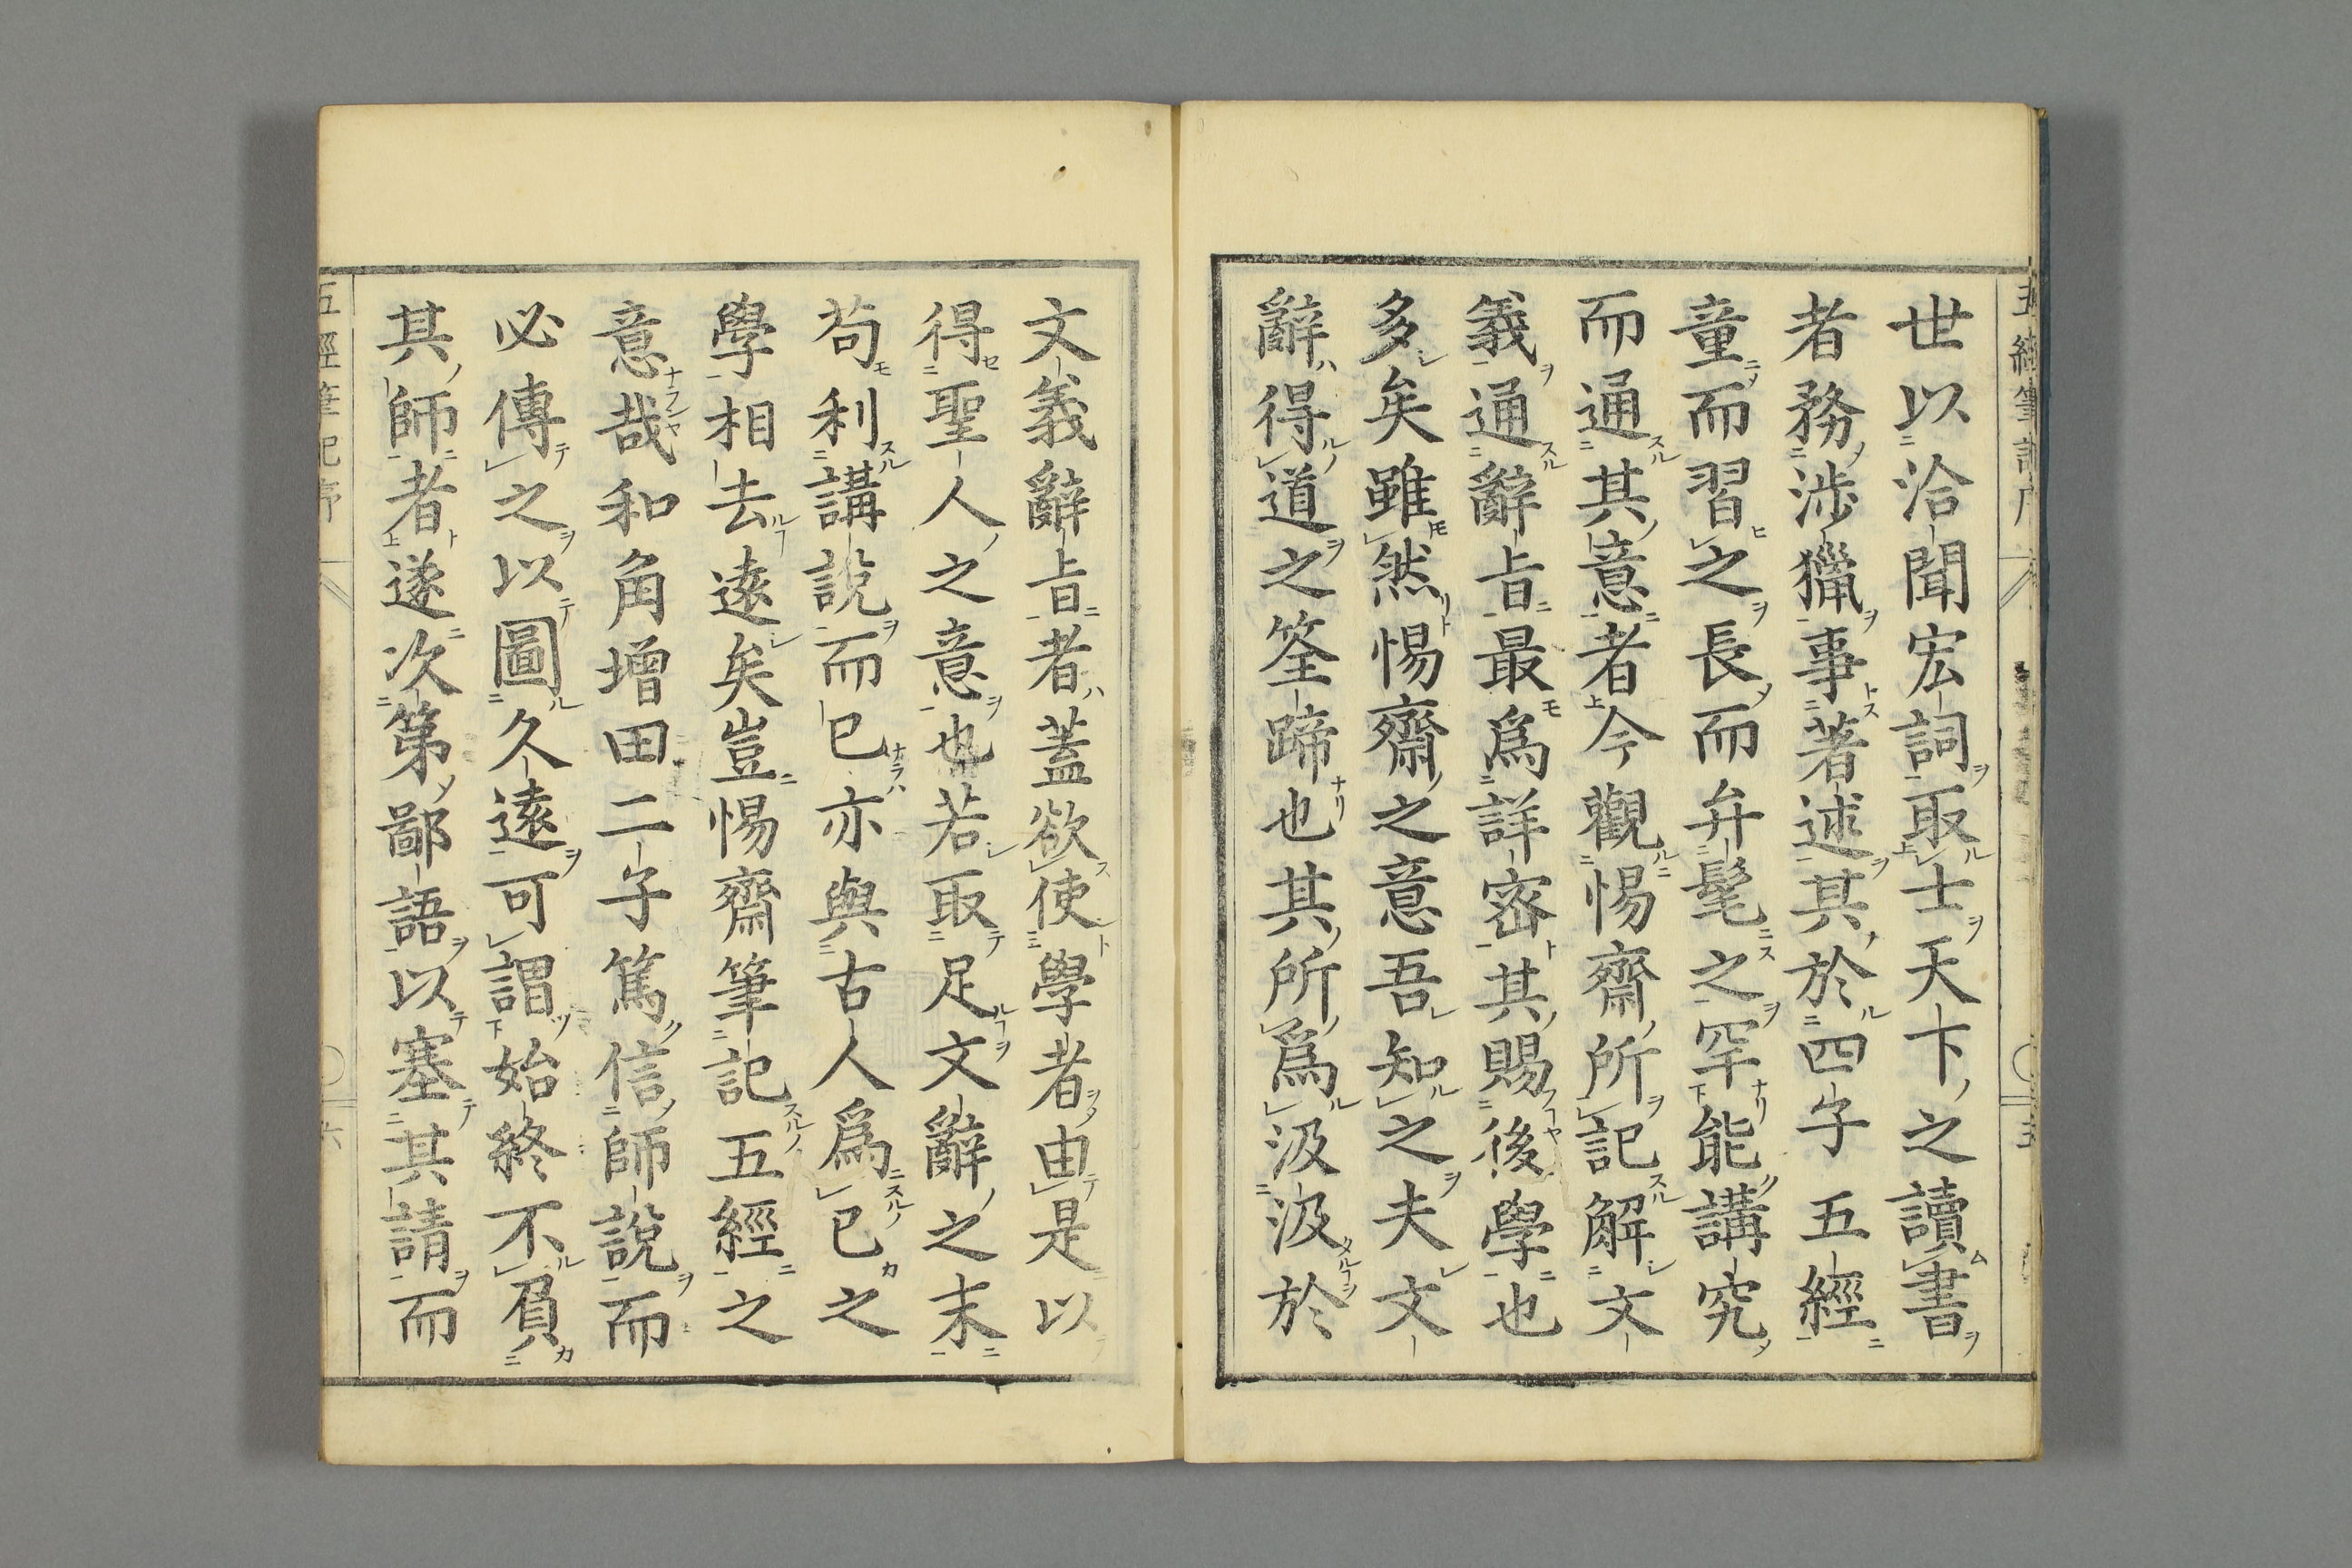 世以洽聞宏詞取士天下之讀書
者務涉獵事著述其於四子五經
童而習之長而弁髦之罕能講究
而通其意者今觀惕齋所記解文
義通辭旨最爲詳密其賜後學也
多矣雖然惕齋之意吾知之夫文
辭得道之筌蹄也其所爲汲汲於
文義辭旨者蓋欲使學者由是以
得聖人之意也若取足文辭之末
苟利講說而已亦與古人爲己之
學相去遠矣豈惕齋筆記五經之
意哉和角增田二子篤信師說而
必傳之以圖久遠可謂始終不負
其師者遂次第鄙語以塞其請而